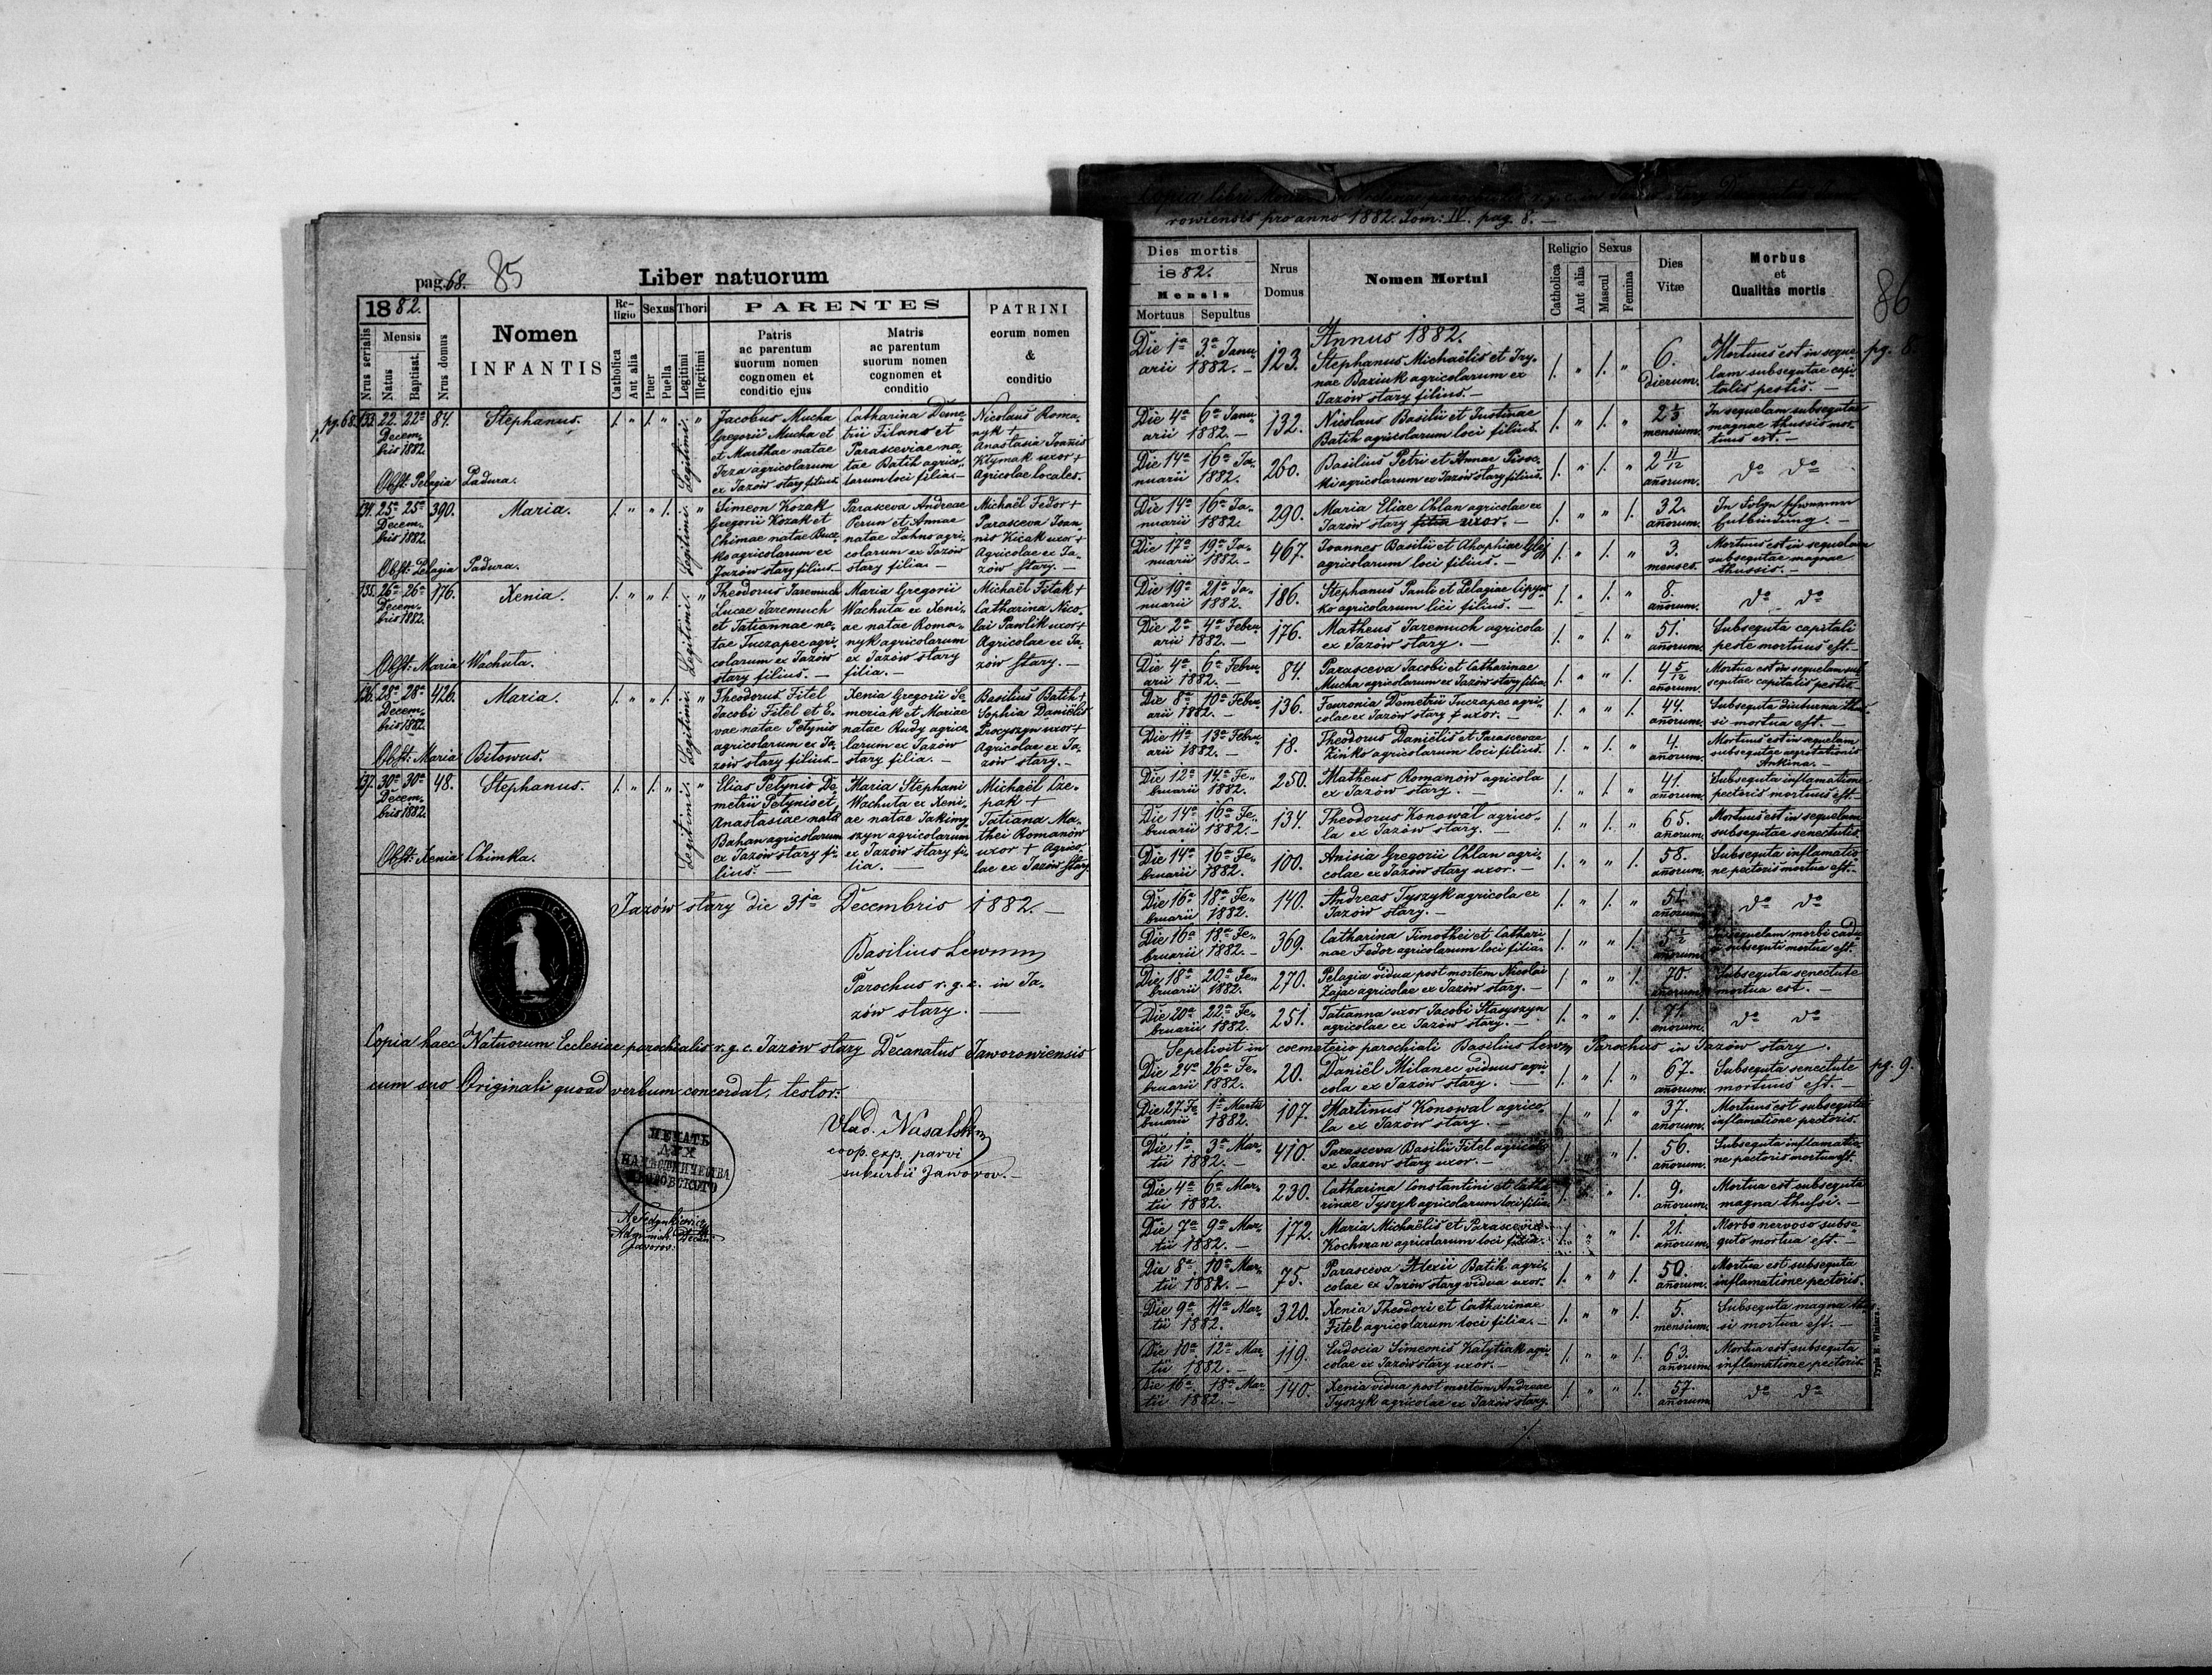 pag. 68. 85
Liber natuorum
1882.
Nrus serialis
Mensis
Natus
Baptisat.
Nrus domus
Nomen
INFANTIS
Re-
ligio
Catholica
Aut alia
Sexus
Puer
Puella
Thori
Legitimi
Illegitimi
PARENTES
Patris
ac parentum
suorum nomen
cognomen et
conditio ejus
Matris
ac parentum
suorum nomen
cognomen et
conditio
PATRINI
eorum nomen
&
conditio
pg. 68.
133. 22. 22a
Decem-
bris 1882.
84.
Stephanus.
Legitimi.
Jacobus Mucha
Gregorii Mucha et
et Marthae natae
agricolarum
ex Jazów stary filius.
Catharina Deme-
trii Filano et
Parasceviae na-
tae Batih agrico-
larum loci filia.—
Nicolaus Roma-
nyk +
Anastasia Joannis
Klymak uxor +
Agricolae locales.
Obst: Pelagia Padura.
134. 25a 25a
Decem-
bris 1882
390.
Maria.
Legitimi.
Simeon Kozak
Gregorii Kozak et
Chimae natae Bucz-
ko agricolarum ex
Jazów stary filius.
Parasceva Andreae
Perun et Annae
natae Lahno agri-
colarum ex Jazów
stary filia.—
Michaël Fedor +
Parasceva Joan-
nis Kicak uxor +
Agricolae ex Ja-
zów stary.—
Obst: Pelagia Padura.
135. 26a 26a
Decem-
bris 1882.
176.
Xenia.
Legitimi.
Theodorus Jaremuch
Lucae Jaremuch
et Tatiannae na-
tae Tuczapec agri-
colarum ex Jazów
stary filius.—
Maria Gregorii
Wachuta ex Xeni-
ae natae Roma-
nyk agricolarum
ex Jazów stary
filia.—
Michaël Fitak +
Catharina Nico-
lai Pawlik uxor +
Agricolae ex Ja-
zów stary.—
Obst: Maria Wachuta.
136. 28a 28a
Decem-
bris 1882.
426.
Maria.
Legitimi.
Theodorus Fitel
Jacobi Fitel et E-
vae natae Petynio
agricolarum ex Ja-
zów stary filius.—
Xenia Gregorii Se-
meriak et Mariae
natae Rudy agrico-
larum ex Jazów
stary filia.—
Basilius Batih +
Sophia Daniëlis
Procyszyn uxor +
Agricolae ex Ja-
zów stary.—
Obst: Maria Bitowus.
137. 30a 30a
Decem-
bris 1882.
48.
Stephanus.
Legitimi.
Elias Petynio De-
metrii Petynio et
Anastasiae nata
Bahan agricolarum
ex Jazów stary fi-
lius.—
Maria Stephani
Wachuta ex Xeni-
ae natae Jakimy-
szyn agricolarum
ex Jazów stary fi-
lia.—
Michaël Cze-
pak +
Tatiana Ma-
thei Romanów
uxor + Agrico-
lae ex Jazów stary.
Obst: Xenia Chimka.
Jazów stary die 31ia Decembris 1882.—
Basilius Lewmn
Parochus r. g. c. in Ja-
zów stary.—
Copia haec Natuorum Ecclesiae parochialis r. g. c. Jazów stary Decanatus Jaworowiensis
cum suo Originali quoad verbum concordat, testor:
Vlad. Nasalskin
coop. exp. parvi
suburbii Jaworov.—
ПЕЧАТЬ
ДЕК
НАМѢСТНИЧЕСТВА
ЯВОРОВСКОГО
Jaworov:
Copia libri
rowiensis pro anno 1882. Tom: IV. pag. 8.—
86
Dies mortis
1882.
Mensis
Mortuus Sepultus
Nrus
Domus
Nomen Mortui
Religio
Catholica
Aut alia
Sexus
Mascul
Femina
Dies
Vitæ
Morbus
et
Qualitas mortis
Annus 1882.
pg. 8.
Die 1a 3a Janu-
arii 1882.—
123.
Stephanus Michaëlis et Iry-
nae Baziuk agricolarum ex
Jazów stary filius.—
6.
dierum.
Mortuus est in seque-
lam subsequtae capi-
talis pestis.—
Die 4a 6a Janu-
arii 1882.—
132.
Nicolaus Basilii et Justinae
Batih agricolarum loci filius.
2 1/3
mensium.
In sequelam subsequtae
magnae thussis mor-
tuus est.—
Die 14a 16a Ja-
nuarii 1882.
260.
Basilius Petri et Annae Piroc-
ki agricolarum ex Jazów stary filius.
2 11/12
añorum.
do do
Die 14a 16a Ja-
nuarii 1882.
290.
Maria Eliae Chlan agricolae ex
Jazów stary filia uxor.—
32.
añorum.
In Folge schwerer
Entbindung.—
Die 17a 19a Ja-
nuarii 1882.—
467.
Joannes Basilii et Ahaphiae Glej
agricolarum loci filius.—
3.
menses.
Mortuus est in sequelam
subsequtae magnae
thussis.—
Die 19a 21a Ja-
nuarii 1882.
186.
Stephanus Pauli et Pelagiae Cipyw-
ko agricolarum lici filius.—
8.
añorum.
do do
Die 2a 4a Febru-
arii 1882.
176.
Matheus Jaremuch agricola
ex Jazów stary.—
51.
añorum.
Subsequta capitali
peste mortuus est.—
Die 4a 6a Febru-
arii 1882.—
84.
Parasceva Jacobi et Catharinae
Mucha agricolarum ex Jazów stary filia.
4 5/12
añorum.
Mortua est in sequelam sub-
sequtae capitalis pestis.
Die 8a 10a Febru-
arii 1882.—
136.
Feuronia Demetrii Tuczapec agri-
colae ex Jazów stary f uxor.—
44.
añorum.
Subsequta diuturna thus-
si mortua est.—
Die 11a 13a Febru-
arii 1882.—
18.
Theodorus Daniëlis et Parascevae
Zińko agricolarum loci filius.
4.
añorum.
Mortuus est in sequelam
subsequtae aegrotationis
Ankina.—
Die 12a 14a Fe-
bruarii 1882.
250.
Matheus Romanów agricola
ex Jazów stary.—
41.
añorum.
Subsequta inflamatione
pectoris mortuus est.—
Die 14a 16a Fe-
bruarii 1882.—
134.
Theodorus Konowal agrico-
la ex Jazów stary.—
65.
añorum.
Mortuus est in sequelam
subsequtae senectutis.
Die 14a 16a Fe-
bruarii 1882.
100.
Anisia Gregorii Chlan agri-
colae ex Jazów stary uxor.—
58.
añorum.
Subsequta inflamatio-
ne pectoris mortua est.—
Die 16a 18a Fe-
bruarii 1882.
140.
Andreas Tyszyk agricola ex
Jazów stary.—
añorum.
do do
Die 16a 18a Fe-
bruarii 1882.—
369.
Catharina Timothei et Cathari-
nae Fedor agricolarum loci filia.
5 1/2
añorum.
In sequelam morbi cadu-
ci subsequti mortua est.
Die 18a 20a Fe-
bruarii 1882.
270.
Pelagia vidua post mortem Nicolai
Zajac agricolae ex Jazów stary.—
70.
añorum.
Subsequta senectute
mortua est.—
Die 20a 22a Fe-
bruarii 1882.
251.
Tatianna uxor Jacobi Stasyszyn
agricolae ex Jazów stary.—
71.
añorum.
do do
Sepelivit in coemeterio parochiali Basilius Lewn Parochus in Jazów stary.
pg. 9.
Die 24a 26a Fe-
bruarii 1882.
20.
Daniël Milanec viduus agri-
cola ex Jazów stary.—
67.
añorum.
Subsequta senectute
mortuus est.—
Die 27. Fe- 1a Martii
bruarii 1882.
107.
Martinus Konowal agrico-
la ex Jazów stary.—
37.
añorum.
Mortuus est subsequta
inflamatione pectoris.
Die 1a 3a Mar-
tii 1882.—
410.
Parasceva Basilii Fitel agricolae
ex Jazow stary uxor.—
56.
añorum.
Subsequta inflamatio-
ne pectoris mortua est.
Die 4a 6a Mar-
tii 1882.
230.
Catharina Constantini et Catha-
rinae Tyszyk agricolarum loci filia.
9.
añorum.
Mortua est subsequta
magna thussi.—
Die 7a 9a Mar-
tii 1882.—
172.
Maria Michaëlis et Parascevae
Kochman agricolarum loci filia.
21.
añorum.
Morbo nervoso subse-
quto mortua est.—
Die 8a 10a Mar-
tii 1882.—
75.
Parasceva Alexii Batih agri-
colae ex Jazów stary vidua uxor.
50.
añorum.
Mortua est subsequta
inflamatione pectoris.
Die 9a 11a Mar-
tii 1882.
320.
Xenia Theodori et Catharinae
Fitel agricolarum loci filia.—
5.
mensium.
Subsequta magna thus-
si mortua est.—
Die 10a 12a Mar-
tii 1882.—
119.
Eudocia Simeonis Kalytiak agri-
colae ex Jazów stary uxor.—
63.
añorum.
Mortua est subsequta
inflamatione pectoris.
Die 16a 18a Mar-
tii 1882.—
140.
Xenia vidua post mortem Andreae
Tyszyk agricolae ex Jazów stary.
57.
añorum
do do